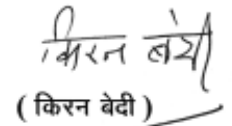 किरन बेदी
( किरन बेदी )